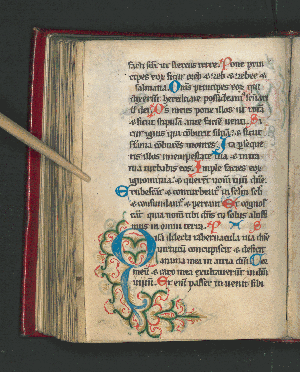 facti sunt ut stercus terre. Pone prin
cipes eorum sicut oreb & zeb & zebee &
salmana. Omnes principes eorum qui
dixerunt hereditate possideamus sanctuari
um dei. Deus meus pone illos ut rotam
& sicut stipulam ante faciem venti. Si
cut ignis qui comburit silvam & sicut
flamma comburens montes. Ita perseque
ris illos in tempestate tua & in ira
tua turbabis eos. Imple facies eorum
ignominia & querent nomen tuum domine
Erubescant & conturbentur in seculum seculi
& confundantur & pereant. Et cognos
cant quia nomen tibi dominus tu solus altissi
mus in omni terra.
Quam dilecta tabernacula tua domine
virtutum concupiscit & deficit
anima mea in atria domini. Cor
meum & caro mea exultaverunt in deum
vivum. Et enim passer invenit sibi